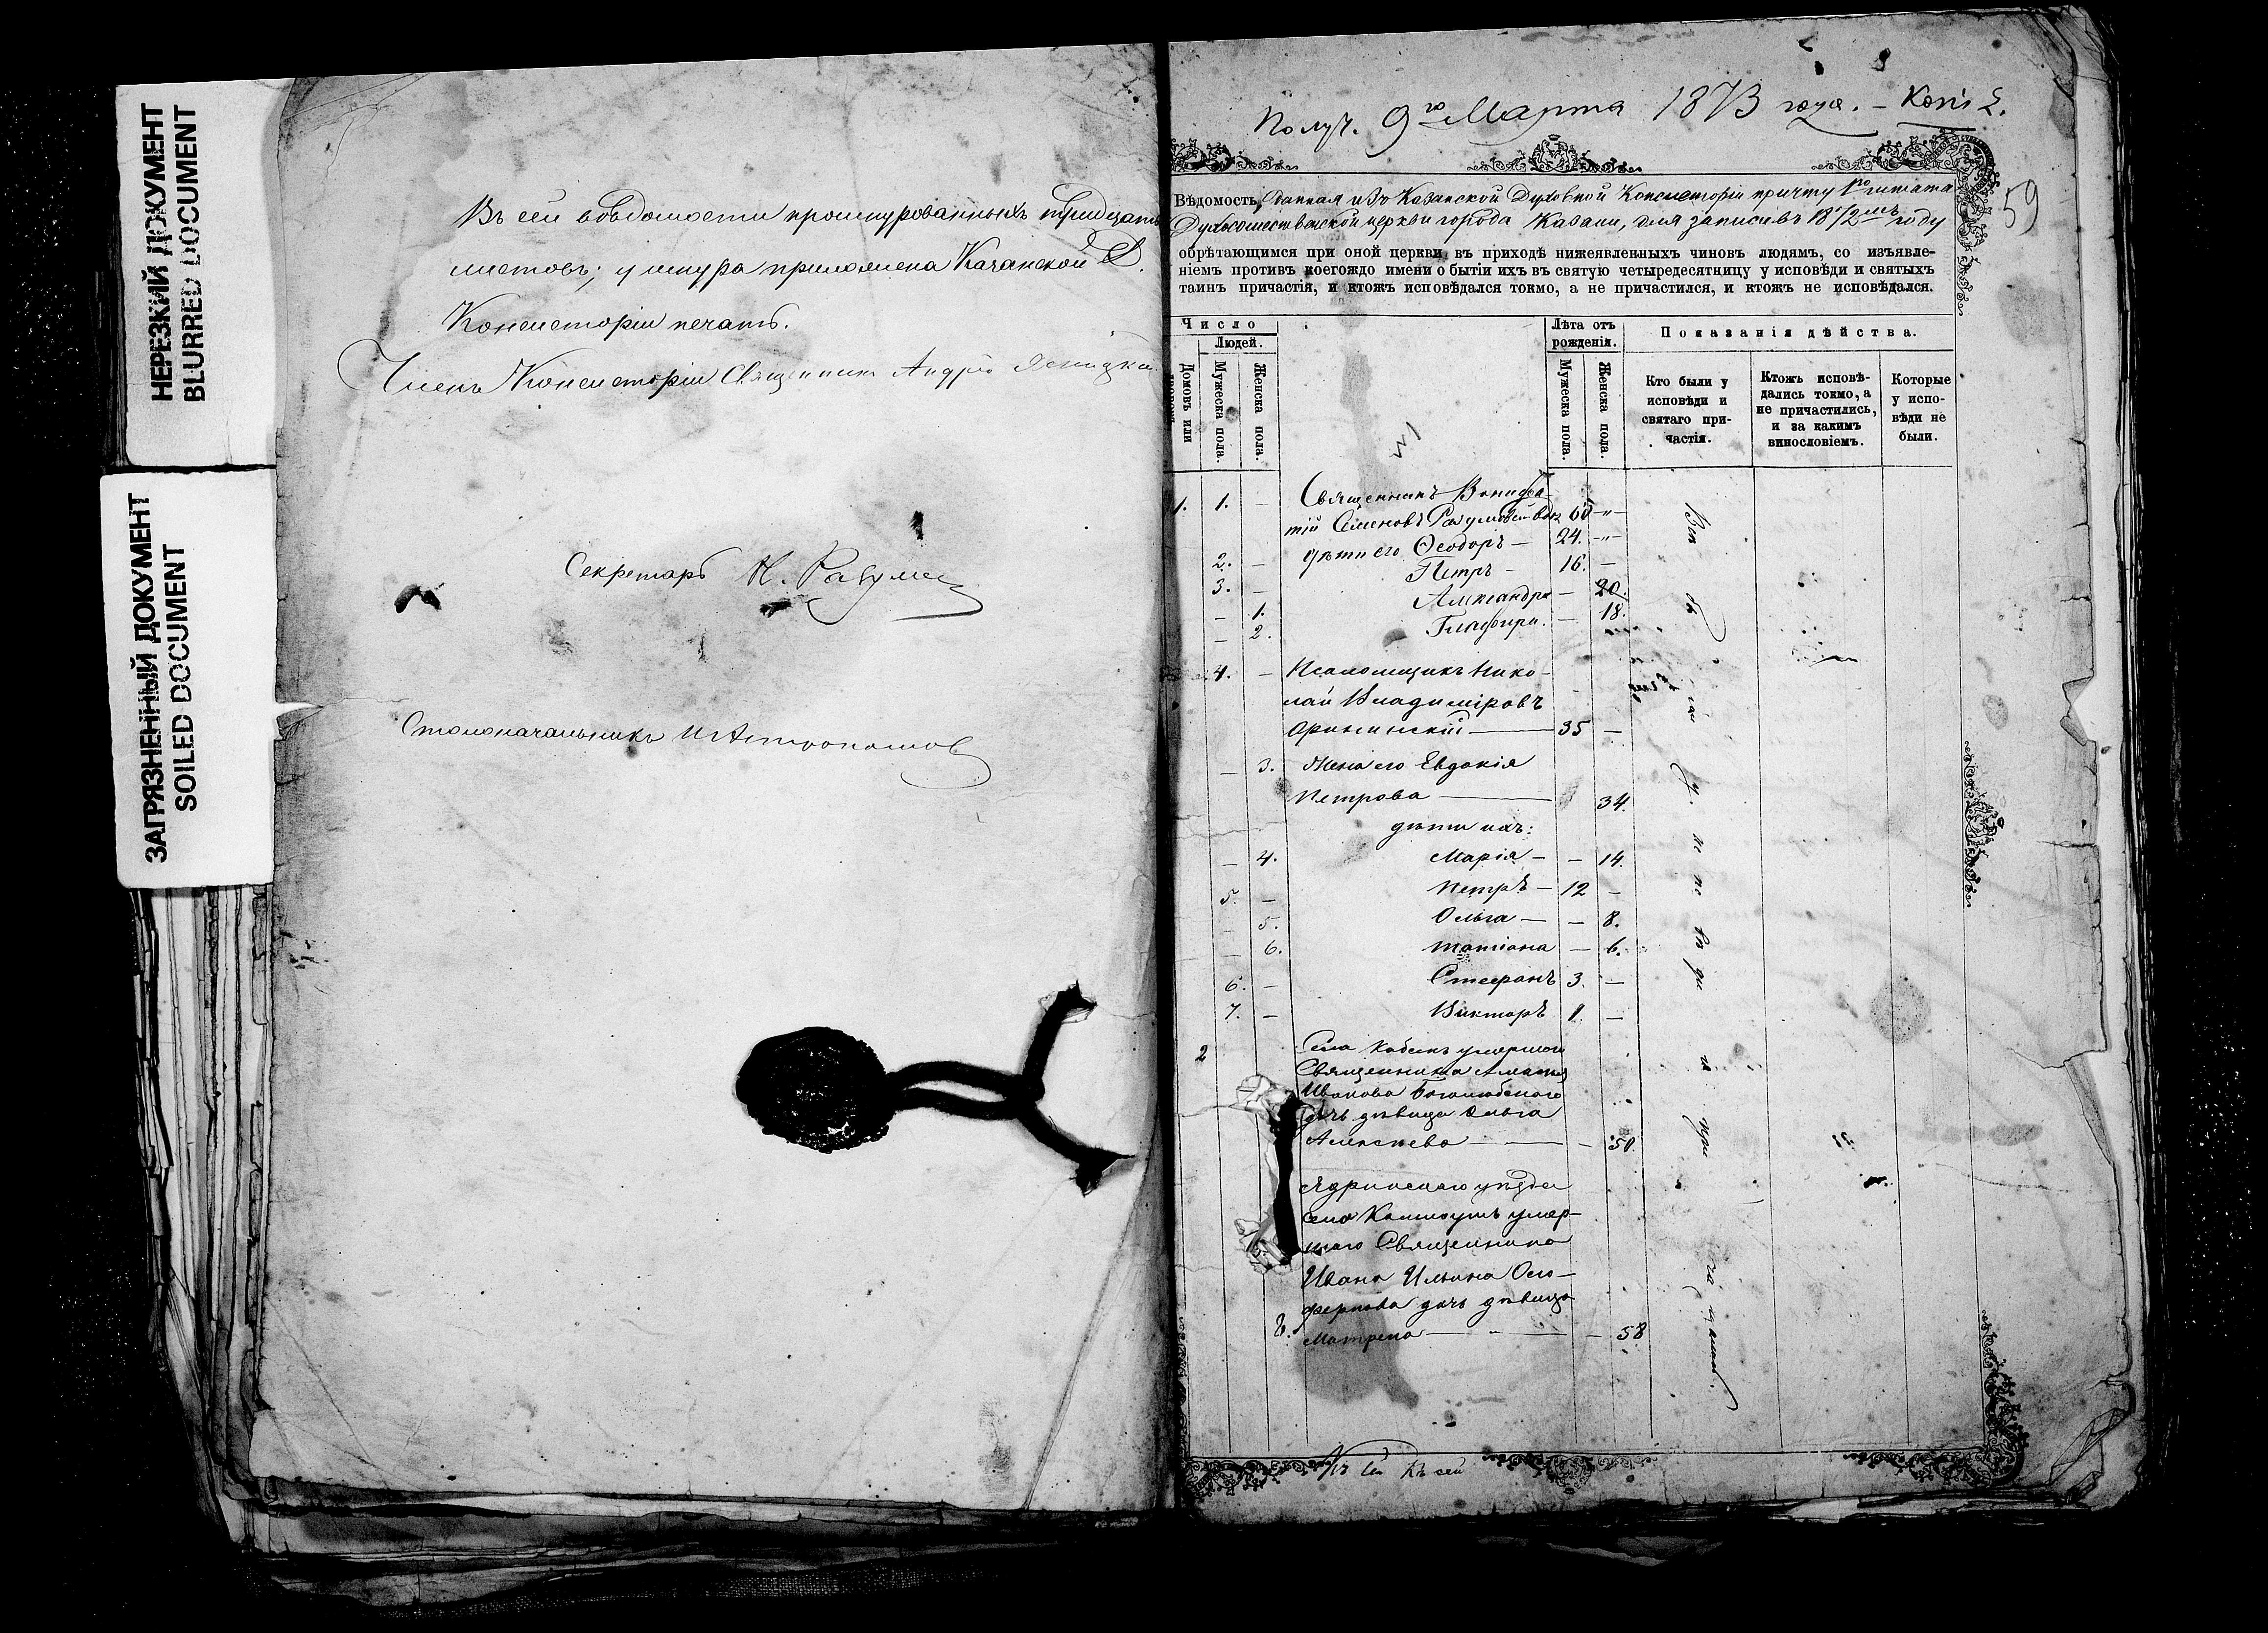 НЕРЕЗКИЙ ДОКУМЕНТ
BLURRED DOCUMENT
ЗАГРЯЗНЕННЫЙ ДОКУМЕНТ
SOILED DOCUMENT
Въ сей вѣдомости прошнурованныхъ тридцать
листовъ; у шнура приложена Казанской Д.
Консисторіи печать.
Членъ Консисторіи Священникъ Андрей Ясницкій
Секретарь Н. Разумов
Столоначальникъ
Получ. 9го Марта 1873 года. –
59
Вѣдомость, данная изъ Казанской Духовной Консисторіи причту 1го штата
Духосошественской церкви города Казани, для записи въ 1872мъ году
обрѣтающимся при оной церкви въ приходѣ нижеявленныхъ чиновъ людямъ, со изъявле-
ніемъ противъ коегождо имени о бытіи ихъ въ святую четыредесятницу у исповѣди и святыхъ
таинъ причастія, и ктожъ исповѣдался токмо, а не причастился, и ктожъ не исповѣдался.
Число
Людей.
Домовъ или
Мужеска пола.
Женска пола.
Лѣта отъ
рожденія.
Мужеска пола.
Женска пола.
Показанія дѣйства.
Кто были у
исповѣди и
святаго при-
частія.
Ктожъ исповѣ-
дались токмо, а
не причастились,
и за какимъ
винословіемъ.
Которые
у испо-
вѣди не
были.
1. 1. – Священникъ Вонифа-
тій Семеновъ 60 –"–
2. – дѣти его Ѳеодоръ – 24. –"–
3. – Петръ – 16. –
– 1. Александра – 20.
– 2. Глафира. – 18.
4. – Псаломщикъ Нико-
лай Владиміровъ
35 –
– 3. Жена его Евдокія
Петрова 34.
дѣти ихъ:
– 4. Марія – – 14.
5. – Петръ – 12 –
– 5. Ольга – – 8.
– 6. Татіана – 6.
6. – Стефанъ 3. –
7. – Викторъ 1. –
2 Села умершаго
Священника
Иванова Боголюбскаго
дочь дѣвица Ольга
Алексѣева – 50.
Ядринскаго уѣзда
села умер-
шаго Священника
Ивана Ильина
дочь дѣвица
8. Матрена – 58
Всѣ бы ли у ис по вѣ ди и при ча щались.